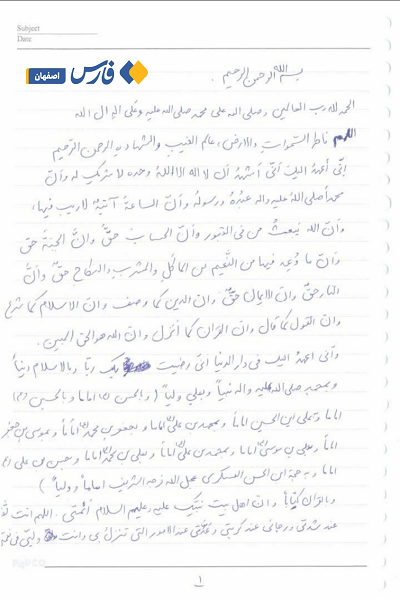 Subject
Date
فارس
اصفهان
بسم الله الرحمن الرحیم .
الحمد لله رب العالمین و صلی الله علی محمد صلی الله علیه و علی آل الله
اللهم فاطر السموات و الارض، عالم الغیب و الشهاده الرحمن الرحیم
انی أعهد الیک أنی أشهد أن لا اله الا الله وحده لا شریک له و أن
محمداً صلی الله علیه و اله عبده و رسوله و أن الساعة آتیة لا ریب فیها،
و أن الله یبعث من فی القبور و أن الحساب حق و أن الجنة حق
و أن ما وعد فیها من النعیم من المأکل و المشرب و النکاح حق و أن
النار حق و أن الایمان حق و ان الدین کما وصف و ان الاسلام کما شرع
و ان القول کما قال و ان القران کما أنزل و ان الله هو الحق المبین.
و أنی اعهد الیک فی دار الدنیا انی رضیت بک رباً و بالاسلام دیناً
و بمحمد صلی الله علیه و اله نبیاً و بعلی ولیاً ( و بالحسن اماما و بالحسین
اماما و بعلی ابن الحسین اماماً و بمحمد بن علی اماما و بجعفر بن محمد اماماً و بموسی بن جعفر
اماماً و بعلی بن موسی اماما و بمحمد بن علی اماماً و بعلی بن محمد اماما و بحسن بن علی
اماما و بحجة ابن الحسن العسکری عجل الله فرجه الشریف اماما و ولیاً )
و بالقران کتاباً و ان اهل بیت نبیک علیه و علیهم السلام أئمتی . اللهم انت ثقتی
عند شدتی و رجائی عند کربتی و عدتی عند الامور التی تنزل بی و انت ولیی فی نعمتی
PAPCO
۱